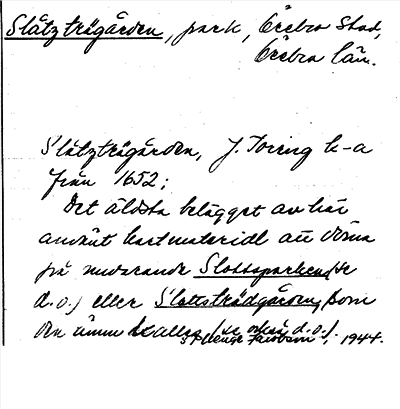 Slåtzträgården, park, Örebro stad,
Örebro län.
Slåtzträgården, J. Toring k-a
från 1652;
Det äldsta belägget av här
använt kartmaterial att döma
på nuvarande Slottsparken (se
d.o.) eller Slottsträdgården, som
den ännu kallas (se också d.o.).
Bengt Jacobson, 1944.